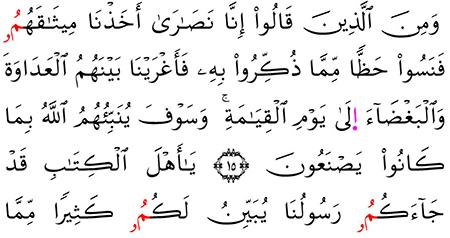 وَمِنَ ٱلَّذِينَ قَالُوٓاْ إِنَّا نَصَٰرَىٰٓ أَخَذۡنَا مِيثَٰقَهُمُۥ
فَنَسُواْ حَظّٗا مِّمَّا ذُكِّرُواْ بِهِۦ فَأَغۡرَيۡنَا بَيۡنَهُمُ ٱلۡعَدَاوَةَ
وَٱلۡبَغۡضَآءَ اِ۪لَىٰ يَوۡمِ ٱلۡقِيَٰمَةِۚ وَسَوۡفَ يُنَبِّئُهُمُ ٱللَّهُ بِمَا
كَانُواْ يَصۡنَعُونَ ١٥ يَٰٓأَهۡلَ ٱلۡكِتَٰبِ قَدۡ
جَآءَكُمُۥ رَسُولُنَا يُبَيِّنُ لَكُمُۥ كَثِيرٗا مِّمَّا